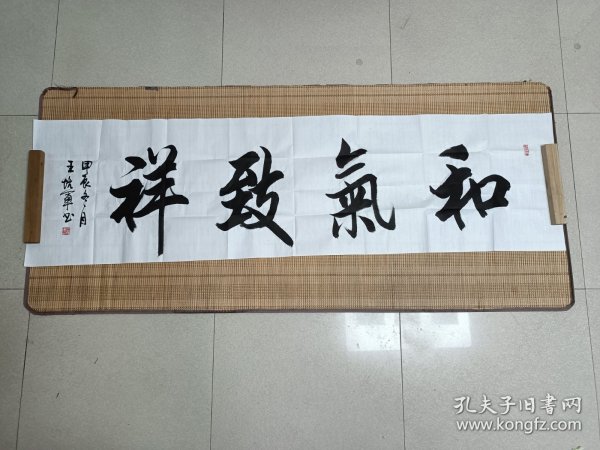 和氣致祥
甲辰冬月
王 軍书
孔夫子旧書网
www.kongfz.com